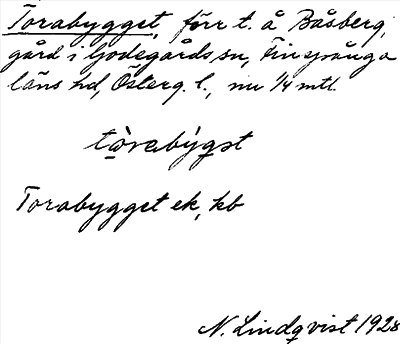 Torabygget, förr t. å Båsberg,
gård i Godegårds sn, Finspånga
läns hd, Österg. l., nu 1/4 mtl.
tòrabýgst
Torabygget ek, kb
N. Lindqvist 1928